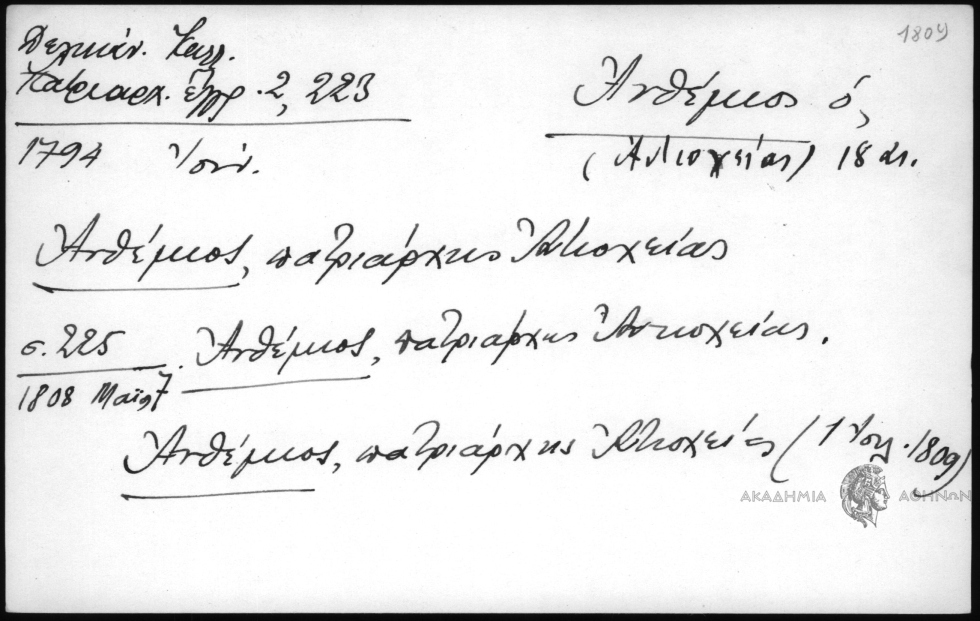 1809
Δελικάν. Καλλ.
Πατριαρχ. έγγρ. 2, 223
Ἀνθέμιος ὁ,
(Ἀντιοχείας) 18 αι.
1794 Ἰουν.
Ἀνθέμιος, πατριάρχης Ἀντιοχείας
σ. 225 Ἀνθέμιος, πατριάρχης Ἀντιοχείας.
1808 Μαΐου 7
Ἀνθέμιος, πατριάρχης Ἀντιοχείας (1 Ἰουλ. 1809)
ΑΚΑΔΗΜΙΑ ΑΘΗΝΩΝ